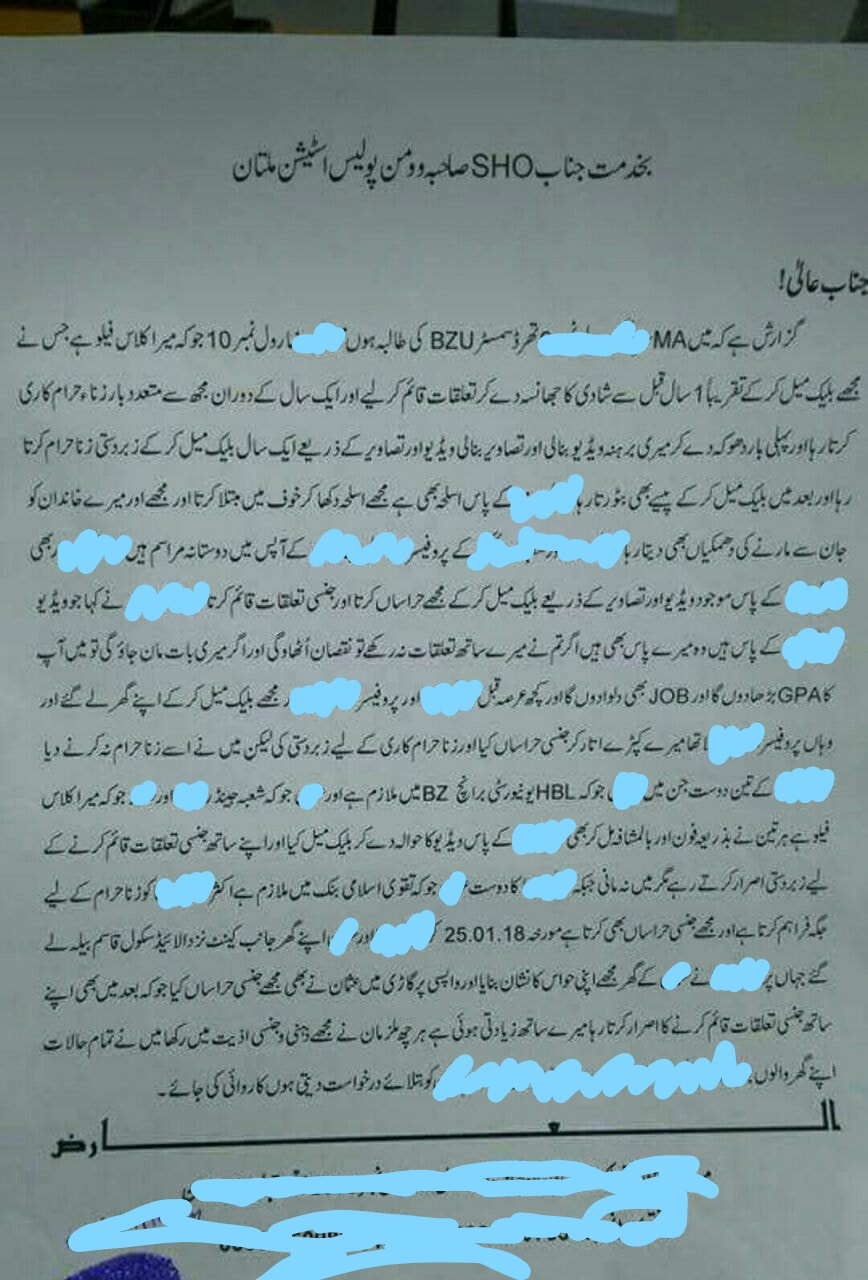 بخدمت جناب SHO صاحبہ وومن پولیس اسٹیشن ملتان
جناب عالیٰ!
گزارش ہے کہ میں MA تھرڈ سمسٹر BZU کی طالبہ ہوں رول نمبر 10 جو کہ میرا کلاس فیلو ہے جس نے
مجھے بلیک میل کر کے تقریباً 1 سال قبل سے شادی کا جھانسہ دے کر تعلقات قائم کر لیے اور ایک سال کے دوران مجھ سے متعدد بار زناء حرام کاری
کرتا رہا اور پہلی بار دھوکہ دے کر میری برہنہ ویڈیو بنالی اور تصاویر بنالی ویڈیو اور تصاویر کے ذریعے ایک سال بلیک میل کر کے زبردستی زنا حرام کرتا
رہا اور بعد میں بلیک میل کر کے پیسے بھی بٹورتا رہا کے پاس اسلحہ بھی ہے مجھے اسلحہ دکھا کر خوف میں مبتلا کرتا اور مجھے اور میرے خاندان کو
جان سے مارنے کی دھمکیاں بھی دیتا رہا کے پروفیسر کے آپس میں دوستانہ مراسم ہیں بھی
کے پاس موجود ویڈیو اور تصاویر کے ذریعے بلیک میل کر کے مجھے حراساں کرتا اور جنسی تعلقات قائم کرتا نے کہا جو ویڈیو
کے پاس ہیں وہ میرے پاس بھی ہیں اگر تم نے میرے ساتھ تعلقات نہ رکھے تو نقصان اُٹھاوگی اور اگر میری بات مان جاؤ گی تو میں آپ
کا GPA بڑھا دوں گا اور JOB بھی دلوا دوں گا اور کچھ عرصہ قبل اور پروفیسر مجھے بلیک میل کر کے اپنے گھر لے گئے اور
وہاں پروفیسر تھا میرے کپڑے اتار کر جنسی حراساں کیا اور زنا حرام کاری کے لیے زبردستی کی لیکن میں نے اسے زنا حرام نہ کرنے دیا
کے تین دوست جن میں جو کہ HBL یونیورسٹی برانچ BZ میں ملازم ہے اور جو کہ شعبہ جینڈر اور جو کہ میرا کلاس
فیلو ہے ہر تین نے بذریعہ فون اور بالمشافہ مل کر بھی کے پاس ویڈیو کا حوالہ دے کر بلیک میل کیا اور اپنے ساتھ جنسی تعلقات قائم کرنے کے
لیے زبردستی اصرار کرتے رہے مگر میں نہ مانی جبکہ کا دوست جو کہ تقوی اسلامی بنک میں ملازم ہے اکثر کو زنا حرام کے لیے
جگہ فراہم کرتا ہے اور مجھے جنسی حراساں بھی کرتا ہے مورخہ 25.01.18 اور اپنے گھر جانب کینٹ نزد الائیڈ سکول قاسم بیلہ لے
گئے جہاں پر نے کے گھر مجھے اپنی حواس کا نشان بنایا اور واپسی پر گاڑی میں عثان نے بھی مجھے جنسی حراساں کیا جو کہ بعد میں بھی اپنے
ساتھ جنسی تعلقات قائم کرنے کا اصرار کرتا رہا میرے ساتھ زیادتی ہوئی ہے ہر چھ ملزمان نے مجھے ذہنی و جنسی اذیت میں رکھا میں نے تمام حالات
اپنے گھر والوں کو بتلائے درخواست دیتی ہوں کاروائی کی جائے۔
العارض